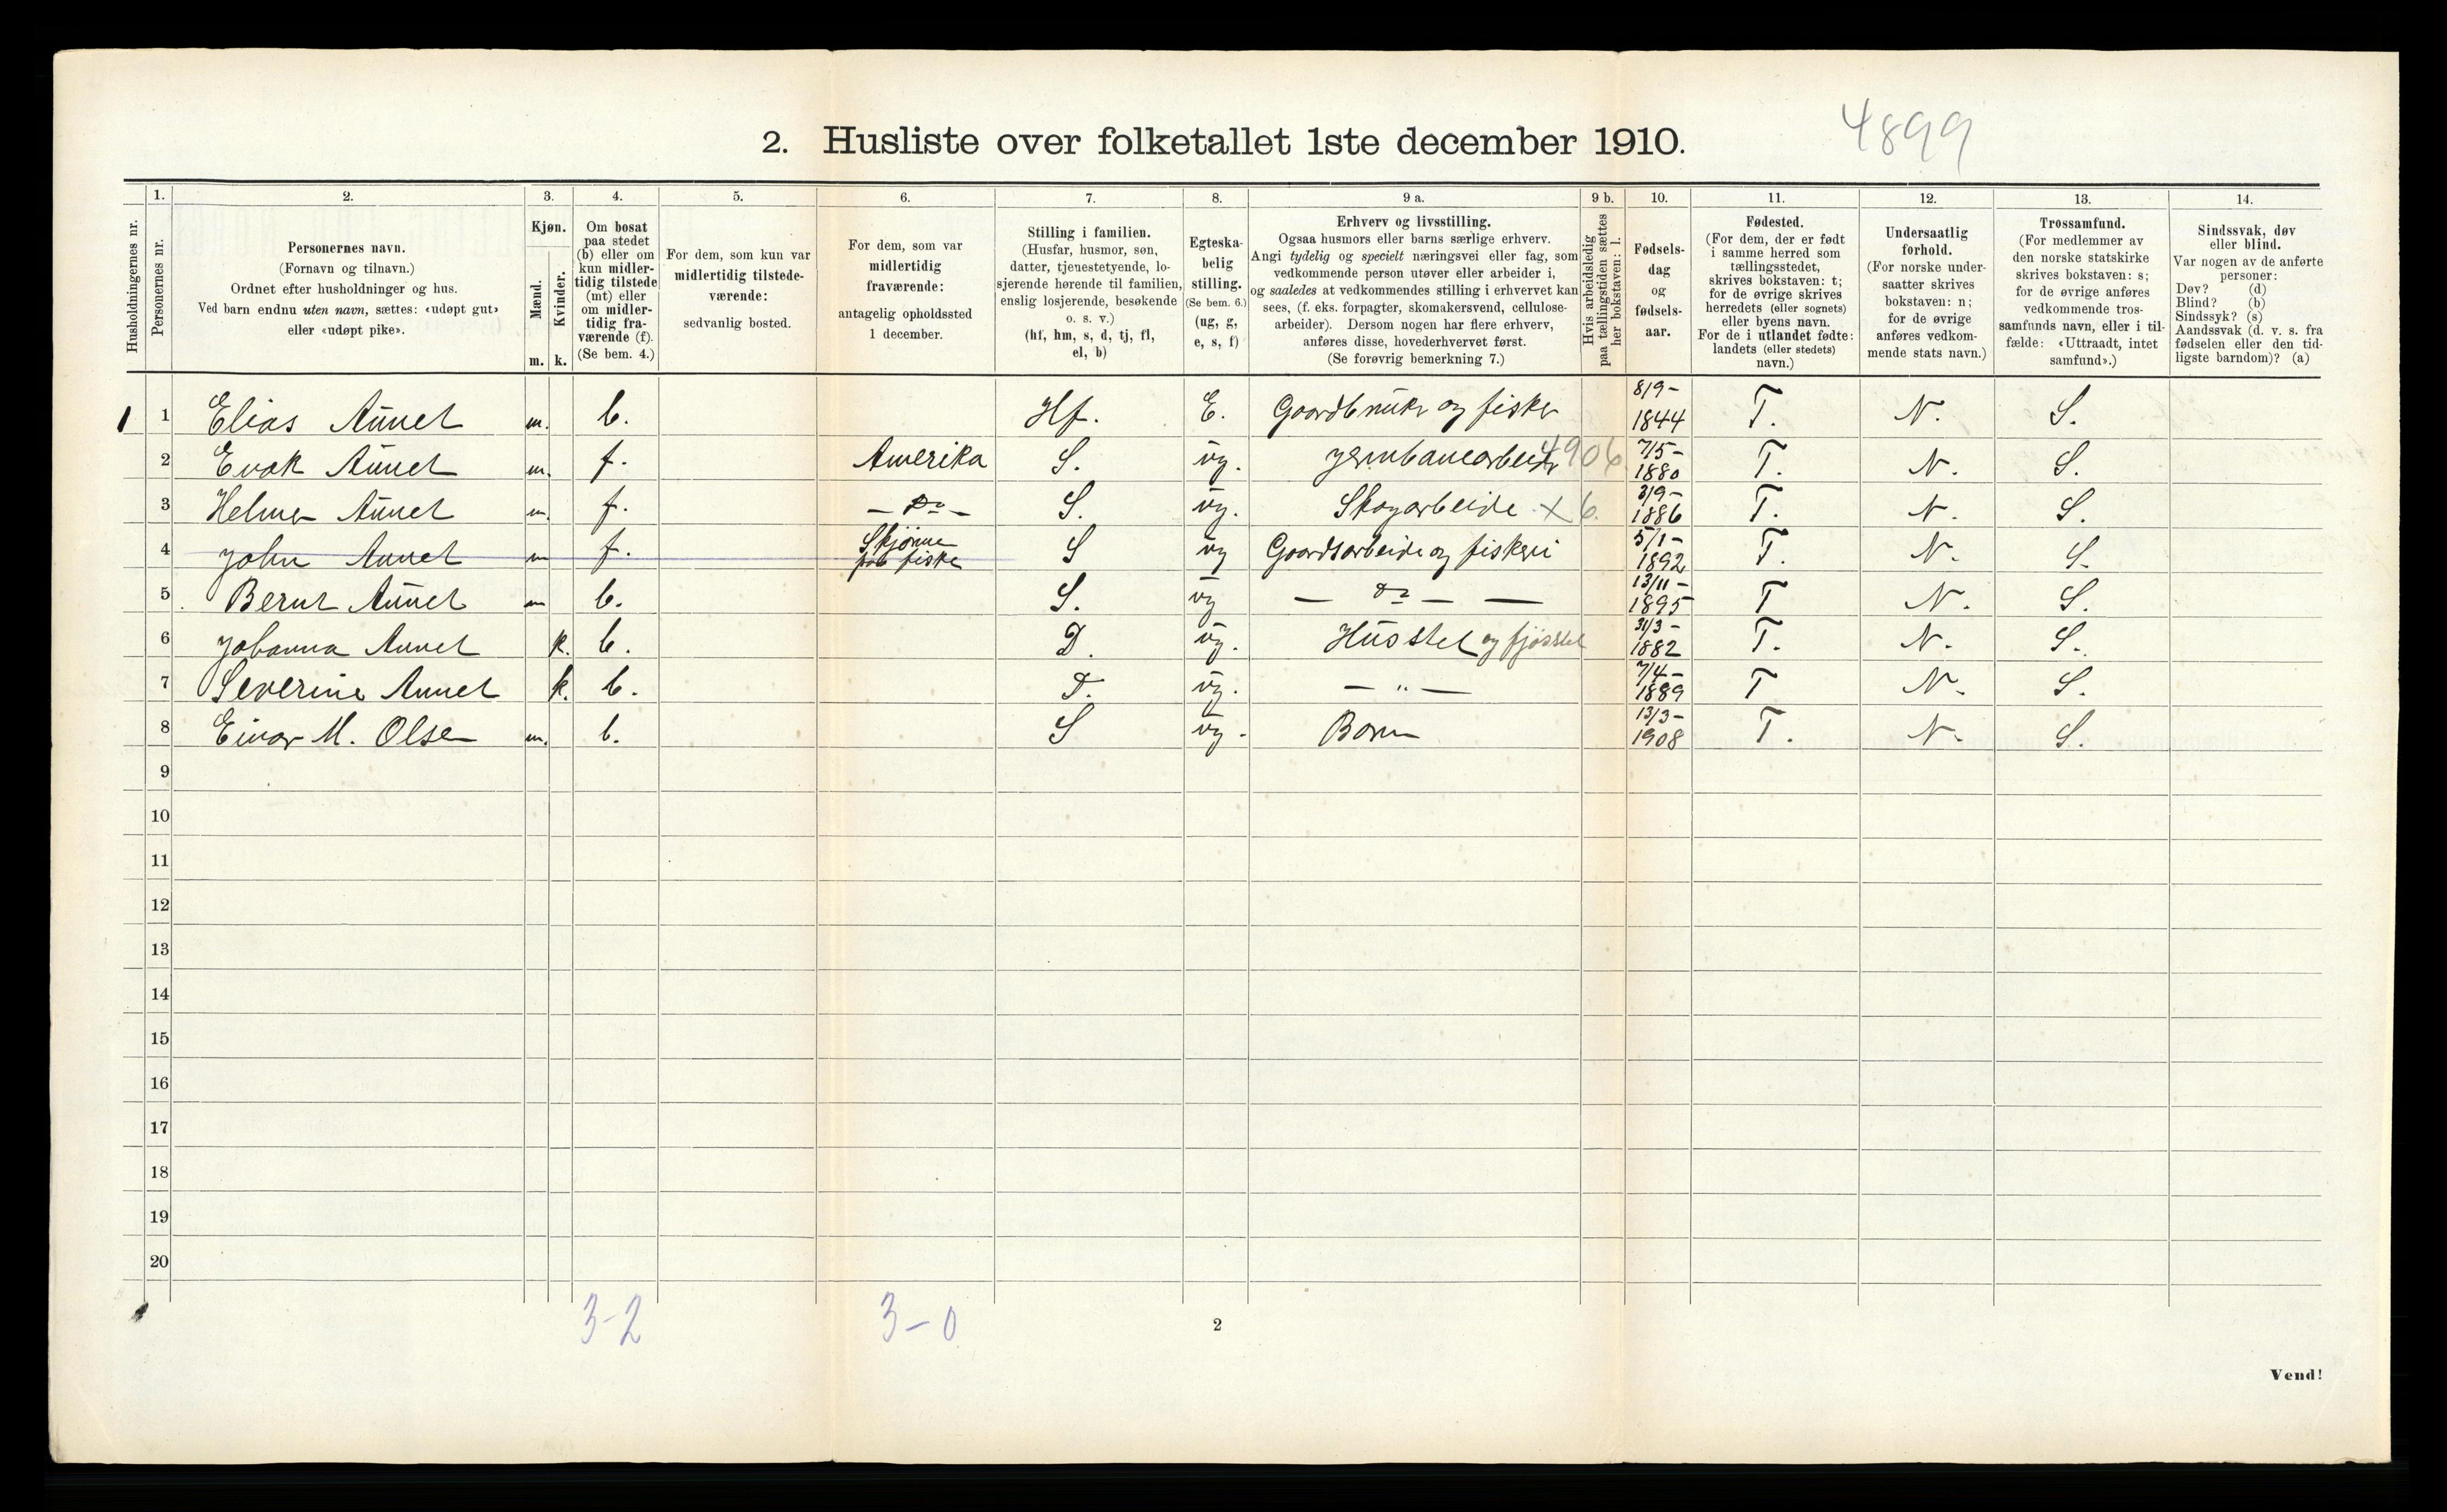 4899
2. Husliste over folketallet 1ste december 1910.
Husholdningernes nr.
1.
Personernes nr.
2.
Personernes navn.
(Fornavn og tilnavn.)
Ordnet efter husholdninger og hus.
Ved barn endnu uten navn, sættes: «udøpt gut»
eller «udøpt pike».
3.
Kjøn.
Mænd.
Kvinder.
m. k.
4.
Om bosat
paa stedet
(b) eller om
kun midler-
tidig tilstede
(mt) eller
om midler-
tidig fra-
værende (f).
(Se bem. 4.)
5.
For dem, som kun var
midlertidig tilstede-
værende:
sedvanlig bosted.
6.
For dem, som var
midlertidig
fraværende:
antagelig opholdssted
1 december.
7.
Stilling i familien.
(Husfar, husmor, søn,
datter, tjenestetyende, lo-
sjerende hørende til familien,
enslig losjerende, besøkende
o. s. v.)
(hf, hm, s, d, tj, fl,
el, b)
8.
Egteska-
belig
stilling.
(Se bem. 6.)
(ug, g,
e, s, f)
9 a.
Erhverv og livsstilling.
Ogsaa husmors eller barns særlige erhverv.
Angi tydelig og specielt næringsvei eller fag, som
vedkommende person utøver eller arbeider i,
og saaledes at vedkommendes stilling i erhvervet kan
sees, (f. eks. forpagter, skomakersvend, cellulose-
arbeider). Dersom nogen har flere erhverv,
anføres disse, hovederhvervet først.
(Se forøvrig bemerkning 7.)
9 b.
Hvis arbeidsledig
paa tællingstiden sættes
her bokstaven: l.
10.
Fødsels-
dag
og
fødsels-
aar.
11.
Fødested.
(For dem, der er født
i samme herred som
tællingsstedet,
skrives bokstaven: t;
for de øvrige skrives
herredets (eller sognets)
eller byens navn.
For de i utlandet fødte:
landets (eller stedets)
navn.)
12.
Undersaatlig
forhold.
(For norske under-
saatter skrives
bokstaven: n;
for de øvrige
anføres vedkom-
mende stats navn.)
13.
Trossamfund.
(For medlemmer av
den norske statskirke
skrives bokstaven: s;
for de øvrige anføres
vedkommende tros-
samfunds navn, eller i til-
fælde: «Uttraadt, intet
samfund».)
14.
Sindssvak, døv
eller blind.
Var nogen av de anførte
personer:
Døv? (d)
Blind? (b)
Sindssyk? (s)
Aandssvak (d. v. s. fra
fødselen eller den tid-
ligste barndom)? (a)
1 1 Elias Aunet m. b. Hf. E. Gaardbruk og fisker 8/9- 1844 T. N. S.
2 Evak Aunet m. f. Amerika S. ug. jernbanearbeide 4906 7/5- 1880 T. N. S.
3 Helmer Aunet m. f. - Do - S. ug. Skogarbeide x 6. 3/9- 1886 T. N. S.
4 John Aunet m f. Skjønne paa fiske S ug Gaardsarbeide og fiskeri 5/1- 1892 T. N. S.
5 Bernt Aunet m b. S. ug - Do - - 13/11- 1895 T N. S.
6 Johanna Aunet k. b. D. ug. Husstel og fjøsstel 31/3- 1882 T. N. S.
7 Severine Aunet k. b. D. ug. - " - 7/4- 1889 T N. S.
8 Einar M. Olsen m. b. S ug. Barn 13/3- 1908 T. N. S.
9
10
11
12
13
14
15
16
17
18
19
20
3-2 3-0
2
Vend!